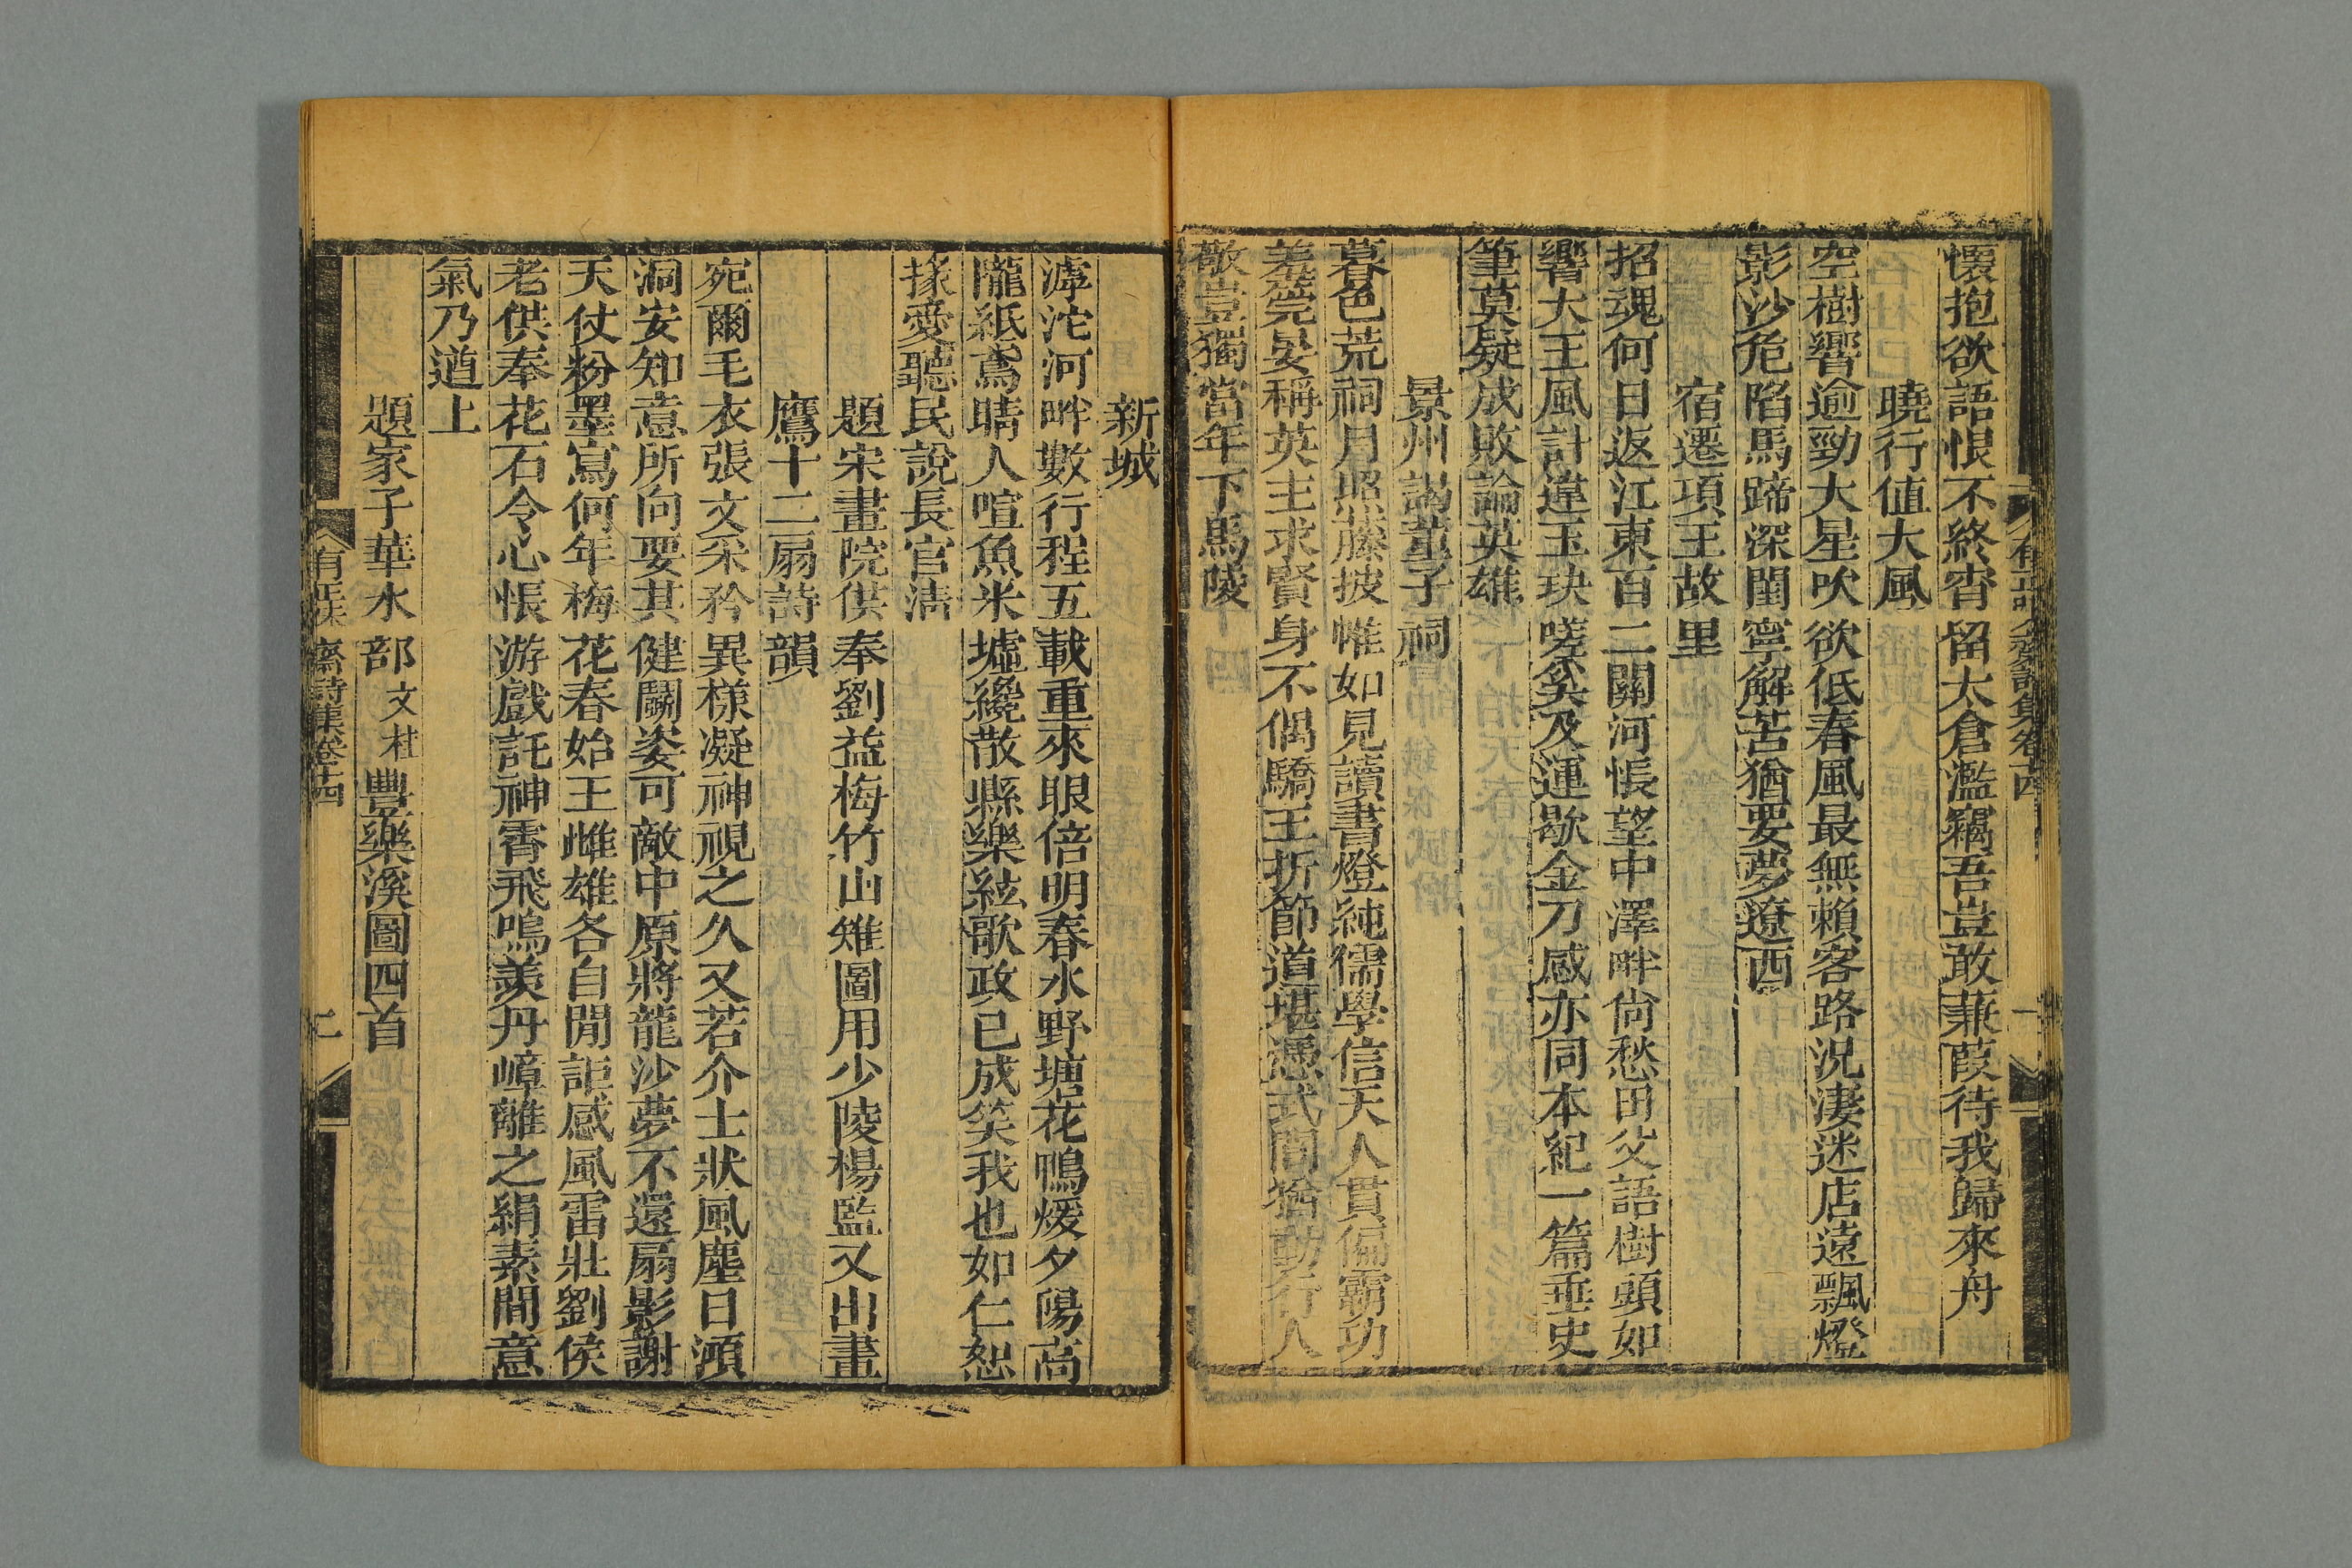 懷抱欲語恨不終宵留太倉濫竊吾豈敢蒹葭待我歸來舟
曉行值大風
空樹響逾勁大星吹欲低春風最無賴客路況淒迷店遠飄燈
影沙危陷馬蹄深閨寧解苦猶要夢遼西
宿遷項王故里
招魂何日返江東百二關河悵望中澤畔尙愁田父語樹頭如
響大王風計違玉玦嗟奚及運歇金刀感亦同本紀一篇垂史
筆莫疑成敗論英雄
景州謁董子祠
暮色荒祠月照藤披帷如見讀書燈純儒學信天人貫偏霸功
羞筦晏稱英主求賢身不偶驕王折節道堪憑式閭猶動行人
敬豈獨當年下馬陵
新城
滹沱河畔數行程五載重來眼倍明春水野塘花鴨煖夕陽高
隴紙鳶晴人喧魚米墟纔散縣樂絃歌政已成笑我也如仁恕
掾愛聽民說長官淸
題宋畫院供奉劉益梅竹山雉圖用少陵楊監又出畫
鷹十二扇詩韻
宛爾毛衣張文采矜異樣凝神視之久又若介士狀風塵日澒
洞安知意所向要其健鬭姿可敵中原將龍沙夢不還扇影謝
天仗粉墨寫何年梅花春始王雌雄各自閒詎感風雷壯劉侯
老供奉花石令心悵游戲託神霄飛鳴羨丹嶂離之絹素間意
氣乃遒上
題家子華水部文桂豐樂溪圖四首
有正味齋詩集卷十四
二